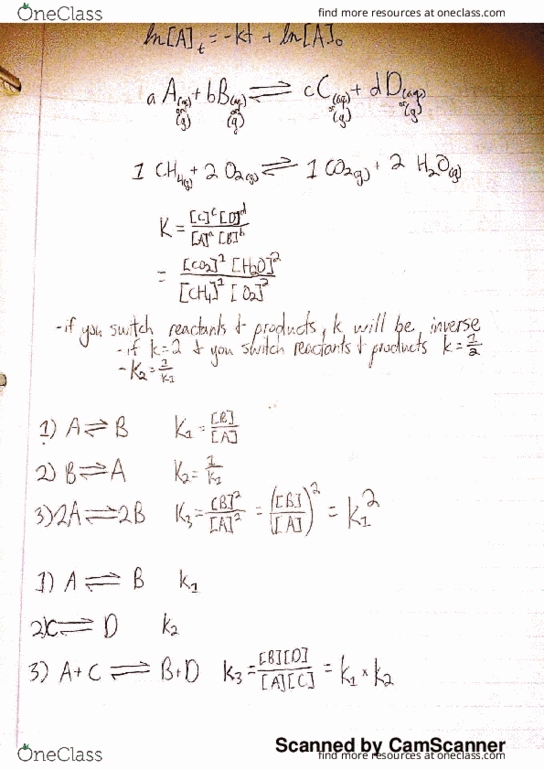 OneClass
find more resources at oneclass.com
ln[A]t = -kt + ln[A]₀
a A(aq) or (g) + bB(aq) or (g) ⇌ cC(aq) or (g) + dD(aq) or (g)
1 CH₄(g) + 2 O₂(g) ⇌ 1 CO₂(g) + 2 H₂O(g)
K = [C]^c [D]^d / [A]^a [B]^b
= [CO₂]¹ [H₂O]² / [CH₄]¹ [O₂]²
-if you switch reactants & products, k will be inverse
-if k=2 & you switch reactants & products k=1/2
-K₂=1/K₁
1) A⇌B K₁ = [B]/[A]
2) B⇌A K₂=1/K₁
3) 2A⇌2B K₃=[B]²/[A]² = ([B]/[A])² = K₁²
1) A ⇌ B k₁
2) C⇌ D k₂
3) A+C ⇌ B+D k₃=[B][D]/[A][C] = k₁ × k₂
Scanned by CamScanner
OneClass
find more resources at oneclass.com